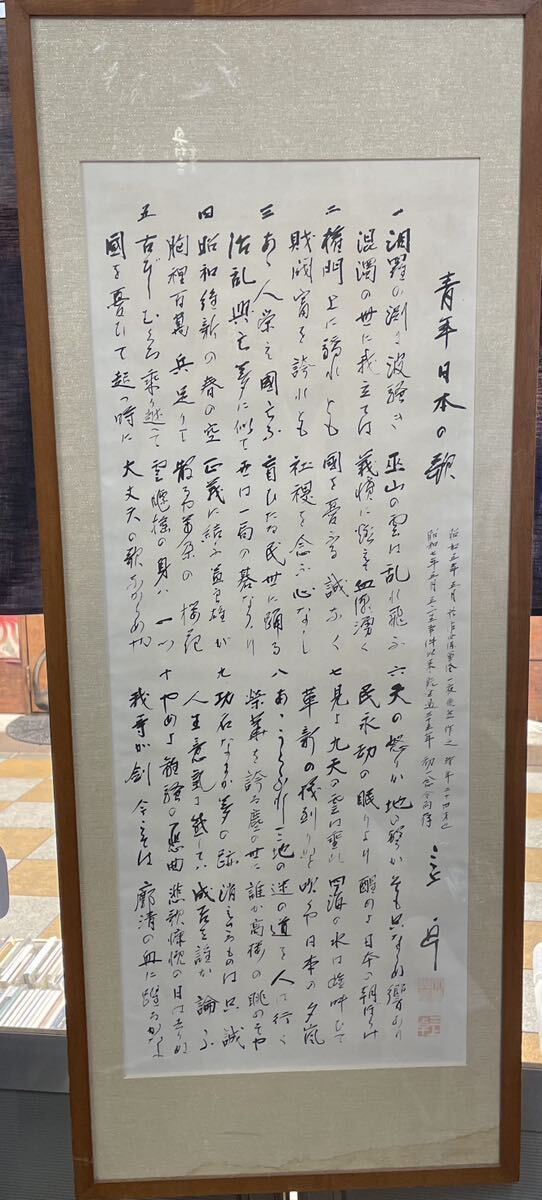 青年日本の歌
昭和五年五月 於佐世保軍港 一夜 作之 時年二十四才也
昭和七年五月五一五事件以来 三十五年 初一念今尚存
卓
一 汨羅の渕に波騒ぎ 巫山の雲は乱れ飛ぶ
混濁の世に我立てば 義憤に燃えて血潮湧く
二 権門上に驕れども 國を憂ふる誠なく
財閥富を誇れども 社稷を念ふ心なし
三 あゝ人栄え國亡ぶ 盲ひたる民世に踊る
治乱興亡夢に似て 世は一局の碁なりけり
四 昭和維新の春の空 正義に結ぶ益良雄が
胸裡百萬兵足りて 散るや萬朶の桜花
五 古びしむくろ乗り越えて 雲飄揺の身は一つ
國を憂ひて起つ時に 大丈夫の歌なからめや
六 天の怒りか地の聲か そも只ならぬ響あり
民永劫の眠りより 醒めよ日本の朝ぼらけ
七 見よ九天の雲は垂れ 四海の水は雄叫びて
革新の機到りぬと 吹くや日本の夕嵐
八 あゝうらぶれし天地の 迷の道を人は行く
栄華を誇る塵の世に 誰が高楼の眺めぞや
九 功名なにか夢の跡 消えざるものは只誠
人生意気に感じては 成否を誰か論ふ
十 やめよ離騒の一悲曲 悲歌慷慨の日は去りぬ
我等が剣今こそは 廓清の血に躍るかな